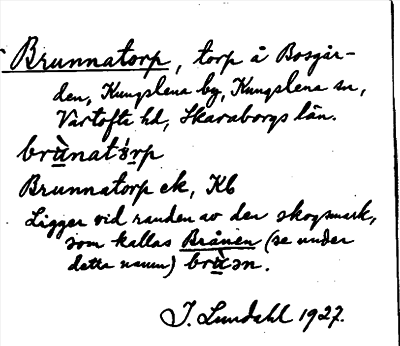 Brunnatorp, torp å Bosgår-
den, Kungslena by, Kungslena sn,
Vartofta hd, Skaraborgs län.
brùnatǿrp
Brunnatorp ek, Kb
Ligger vid randen av den skogsmark,
som kallas Brånen (se under
detta namn) brùən.
J. Lundahl 1927.